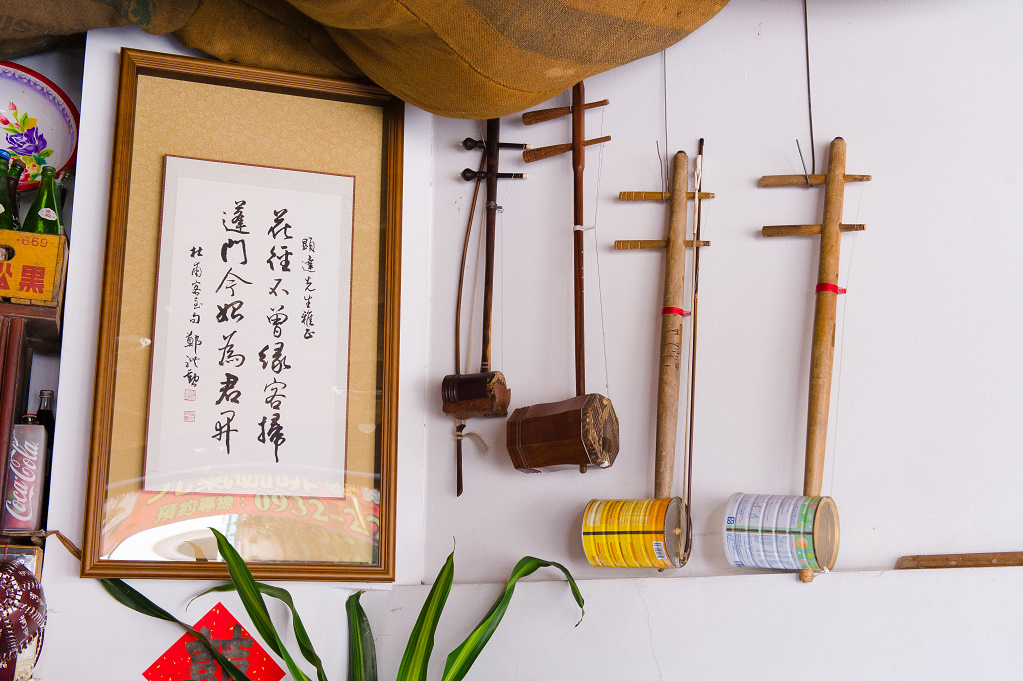 顯達先生雅正
花徑不曾緣客掃
蓬門今始為君開
杜甫客至句 鄭
預約專線：0932-2
669
松黑
Coca-Cola